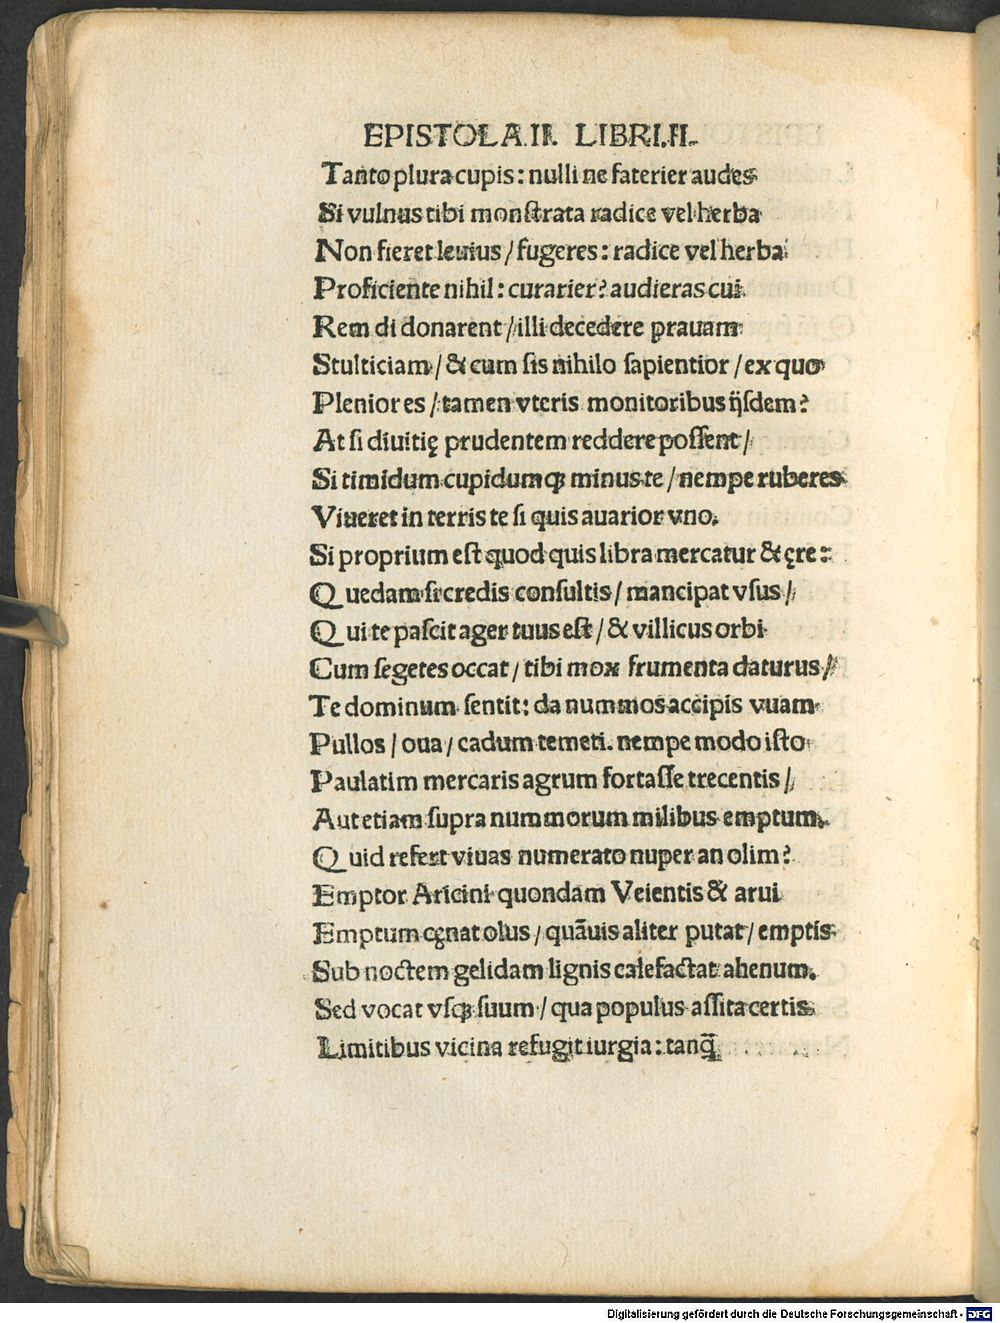 EPISTOLA.II. LIBRI.II.
Tanto plura cupis: nulli ne faterier audes
Si vulnus tibi monſtrata radice vel herba
Non fieret leuius / fugeres: radice vel herba
Proficiente nihil: curarier? audieras cui
Rem di donarent / illi decedere prauam
Stulticiam / & cum ſis nihilo ſapientior / ex quo
Plenior es / tamen vteris monitoribus ijſdem?
At ſi diuitię prudentem reddere poſſent /
Si timidum cupidumqꝫ minus te / nempe ruberes
Viueret in terris te ſi quis auarior vno.
Si proprium eſt quod quis libra mercatur & ęre:
Quedam ſi credis conſultis / mancipat vſus /
Qui te paſcit ager tuus eſt / & villicus orbi
Cum ſegetes occat / tibi mox frumenta daturus /
Te dominum ſentit: da nummos accipis vuam
Pullos / oua / cadum temeti. nempe modo iſto
Paulatim mercaris agrum fortaſſe trecentis /
Aut etiam ſupra nummorum milibus emptum.
Quid refert viuas numerato nuper an olim?
Emptor Aricini quondam Veientis & arui
Emptum cęnat olus / quāuis aliter putat / emptis
Sub noctem gelidam lignis calefactat ahenum.
Sed vocat vſqꝫ ſuum / qua populus aſſita certis
Limitibus vicina refugit iurgia: tanq̄
Digitalisierung gefördert durch die Deutsche Forschungsgemeinschaft - DFG